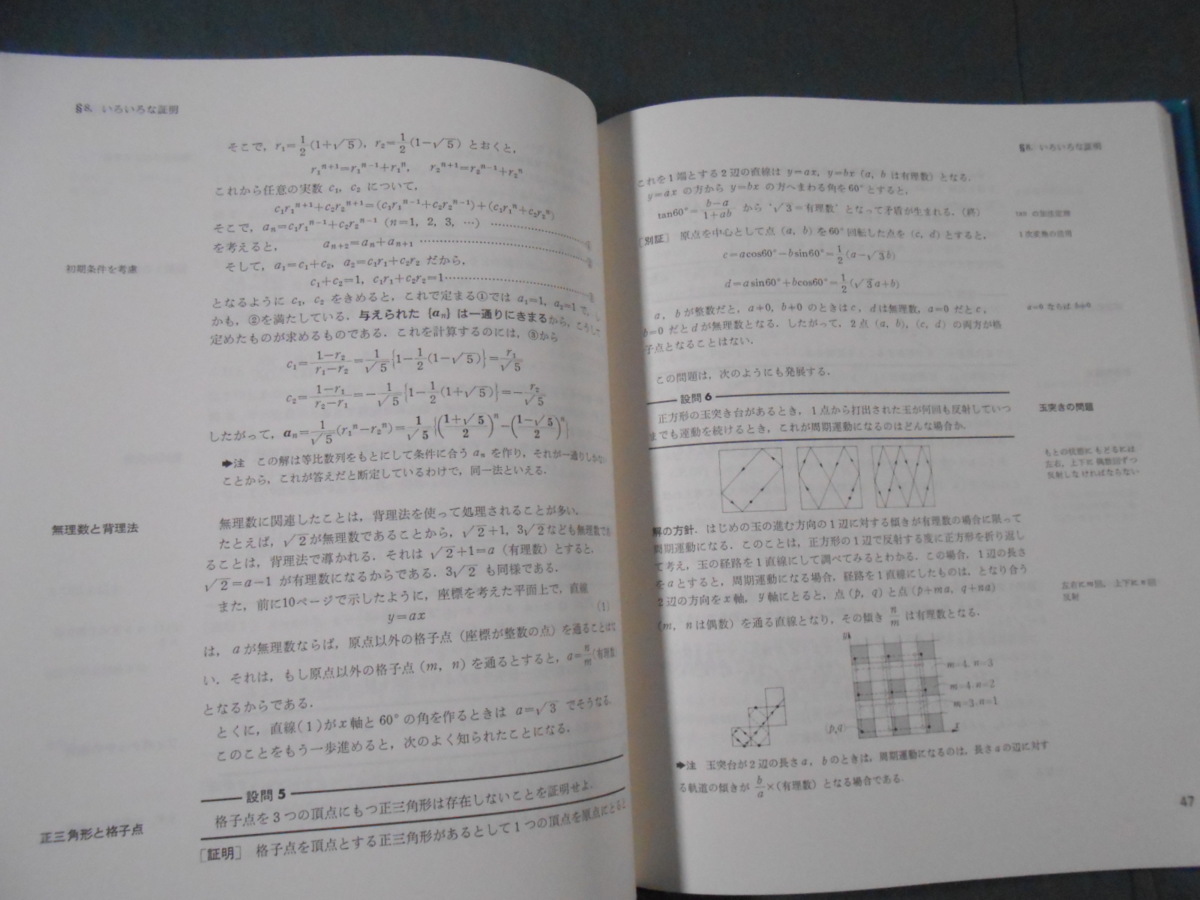 §8. いろいろな証明
そこで, r₁=1/2(1+√5), r₂=1/2(1-√5) とおくと,
r₁ⁿ⁺¹=r₁ⁿ⁻¹+r₁ⁿ, r₂ⁿ⁺¹=r₂ⁿ⁻¹+r₂ⁿ
これから任意の実数 c₁, c₂ について,
c₁r₁ⁿ⁺¹+c₂r₂ⁿ⁺¹=(c₁r₁ⁿ⁻¹+c₂r₂ⁿ⁻¹)+(c₁r₁ⁿ+c₂r₂ⁿ)
そこで, aₙ=c₁r₁ⁿ⁻¹+c₂r₂ⁿ⁻¹ (n=1, 2, 3, …)
を考えると, aₙ₊₂=aₙ+aₙ₊₁
初期条件を考慮
そして, a₁=c₁+c₂, a₂=c₁r₁+c₂r₂ だから,
c₁+c₂=1, c₁r₁+c₂r₂=1
となるように c₁, c₂ をきめると, これで定まる①では a₁=1, a₂=1 で, し
かも, ②を満たしている. 与えられた {aₙ} は一通りにきまるから, こうして
定めたものが求めるものである. これを計算するのには, ③から
c₁=(1-r₂)/(r₁-r₂)=1/√5{1-1/2(1-√5)}=r₁/√5
c₂=(1-r₁)/(r₂-r₁)=-1/√5{1-1/2(1+√5)}=-r₂/√5
したがって, aₙ=1/√5(r₁ⁿ-r₂ⁿ)=1/√5{((1+√5)/2)ⁿ-((1-√5)/2)ⁿ}
➡注 この解は等比数列をもとにして条件に合う aₙ を作り, それが一通りしかない
ことから, これが答えだと断定しているわけで, 同一法といえる.
無理数と背理法
無理数に関連したことは, 背理法を使って処理されることが多い.
たとえば, √2 が無理数であることから, √2+1, 3√2 なども無理数であ
ることは, 背理法で導かれる. それは √2+1=a (有理数) とすると,
√2=a-1 が有理数になるからである. 3√2 も同様である.
また, 前に10ページで示したように, 座標を考えた平面上で, 直線
y=ax (1)
は, a が無理数ならば, 原点以外の格子点 (座標が整数の点) を通ることは
い. それは, もし原点以外の格子点 (m, n) を通るとすると, a=n/m(有理数
となるからである.
とくに, 直線(1)が x 軸と 60° の角を作るときは a=√3 でそうなる.
このことをもう一歩進めると, 次のよく知られたことになる.
設問 5
正三角形と格子点
格子点を3つの頂点にもつ正三角形は存在しないことを証明せよ.
[証明] 格子点を頂点とする正三角形があるとして1つの頂点を原点にとると
§8. いろいろな証明
これを1端とする2辺の直線は y=ax, y=bx (a, b は有理数) となる.
y=ax の方から y=bx の方へまわる角を 60° とすると,
tan60°=(b-a)/(1+ab) から '√3=有理数' となって矛盾が生まれる. (終)
tan の加法定理
[別証] 原点を中心として点 (a, b) を60°回転した点を (c, d) とすると,
1次変換の活用
c=acos60°-bsin60°=1/2(a-√3b)
d=asin60°+bcos60°=1/2(√3a+b)
a, b が整数だと, a≠0, b≠0 のときは c, d は無理数, a=0 だと c,
a=0 ならば b≠0
b=0 だと d が無理数となる. したがって, 2点 (a, b), (c, d) の両方が格
子点となることはない.
この問題は, 次のようにも発展する.
設問 6
正方形の玉突き台があるとき, 1点から打出された玉が何回も反射していつ
玉突きの問題
までも運動を続けるとき, これが周期運動になるのはどんな場合か.
もとの状態にもどるには
左右, 上下に偶数回ずつ
反射しなければならない
解の方針. はじめの玉の進む方向の1辺に対する傾きが有理数の場合に限って
周期運動になる. このことは, 正方形の1辺で反射する度に正方形を折り返し
て考え, 玉の経路を1直線にして調べてみるとわかる. この場合, 1辺の長さ
を a とすると, 周期運動になる場合, 経路を1直線にしたものは, となり合う
2辺の方向を x 軸, y 軸にとると, 点 (p, q) と点 (p+ma, q+na)
左右に m 回, 上下に n 回
反射
(m, n は偶数) を通る直線となり, その傾き n/m は有理数となる.
m=4, n=3
m=4, n=2
m=3, n=1
(p,q)
x
➡注 玉突台が2辺の長さ a, b のときは, 周期運動になるのは, 長さ a の辺に対す
る軌道の傾きが b/a×(有理数) となる場合である.
47